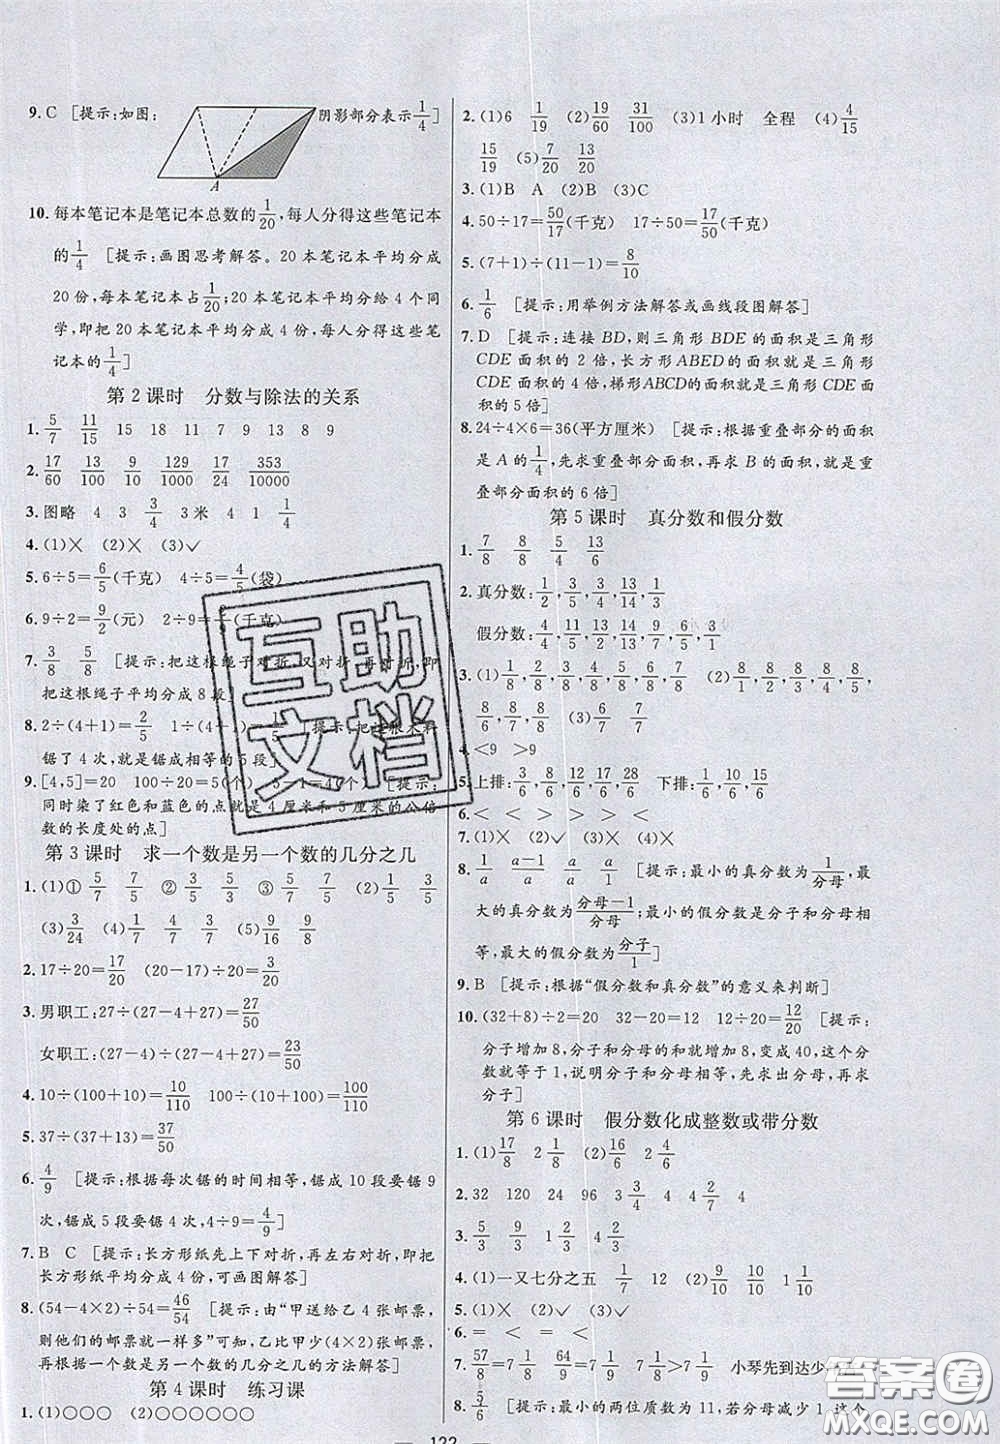 9. C [提示:如图: 阴影部分表示1/4]
A
10. 每本笔记本是笔记本总数的1/20,每人分得这些笔记本
的1/4 [提示:画图思考解答。20本笔记本平均分成
20份,每本笔记本占1/20;20本笔记本平均分给4个同
学,即把20本笔记本平均分成4份,每人分得这些笔
记本的1/4]
第2课时 分数与除法的关系
1. 5/7 11/15 15 18 11 7 9 13 8 9
2. 17/60 13/100 9/10 129/1000 17/24 353/10000
3. 图略 4 3 3/4 3米 4 1 1/4
4. (1)× (2)× (3)✓
5. 6÷5=6/5(千克) 4÷5=4/5(袋)
6. 9÷2=9/2(元) 2÷9=2/9(千克)
7. 3/8 5/8 [提示:把这根绳子对折,又对折,再对折,即
把这根绳子平均分成8段]
8. 2÷(4+1)=2/5 1÷(4+1)=1/5 [提示:把这根木料
锯了4次,就是锯成相等的5段]
9. [4,5]=20 100÷20=5(个) 5-1=4(个) [提示:
同时染了红色和蓝色的点就是4厘米和5厘米的公倍
数的长度处的点]
第3课时 求一个数是另一个数的几分之几
1. (1)① 5/7 7/5 ② 5/3 3/5 ③ 5/7 7/5 (2)1/5 3/5
(3)3/24 (4)5/7 7/5 2/7 2/5
2. 17÷20=17/20 (20-17)÷20=3/20
3. 男职工:27÷(27-4+27)=27/50
女职工:(27-4)÷(27-4+27)=23/50
4. 10÷(100+10)=10/110 100÷(100+10)=100/110
5. 37÷(37+13)=37/50
6. 4/9 [提示:根据每次锯的时间相等,锯成10段要锯9
次,锯成5段要锯4次,4÷9=4/9]
7. B C [提示:长方形纸先上下对折,再左右对折,即把
长方形纸平均分成4份,可画图解答]
8. (54-4×2)÷54=46/54 [提示:由“甲送给乙4张邮票,
则他们的邮票就一样多”可知,乙比甲少(4×2)张邮票,
再根据一个数是另一个数的几分之几的方法解答]
第4课时 练习课
1. (1)○○○ (2)○○○○○○
2. (1)6 1/19 (2)19/60 31/100 (3)1小时 全程 (4)4/15
15/19 (5)7/20 13/20
3. (1)B A (2)B (3)C
4. 50÷17=50/17(千克) 17÷50=17/50(千克)
5. (7+1)÷(11-1)=8/10
6. 1/6 [提示:用举例方法解答或画线段图解答]
7. D [提示:连接BD,则三角形BDE的面积是三角形
CDE面积的2倍,长方形ABED的面积就是三角形
CDE面积的4倍,梯形ABCD的面积就是三角形CDE面
积的5倍]
8. 24÷4×6=36(平方厘米) [提示:根据重叠部分的面积
是A的1/4,先求重叠部分面积,再求B的面积,就是重
叠部分面积的6倍]
第5课时 真分数和假分数
1. 7/8 8/8 5/4 13/6
2. 真分数:
假分数:
3. (1)
(3)6/6 7/6
4. <9 >9
5. 上排: 下排:
6. < < > > > <
7. (1)× (2)✓ (3)✓
8. 1/a a-1/a a/a a/1 [提示:最小的真分数为1/分母,最
大的真分数为分母-1/分母;最小的假分数是分子和分母相
等,最大的假分数为分子/1]
9. B [提示:根据“假分数和真分数”的意义来判断]
10. (32+8)÷2=20 32-20=12 12÷20=12/20 [提示:
分子增加8,分子和分母的和就增加8,变成40,这个分
数就等于1,说明分子和分母相等,先求出分母,再求
分子]
第6课时 假分数化成整数或带分数
1. (1)17/8 2 1/8 (2)16/6 2 4/6
2. 32 120 24 96 3 3/4 4 2/7 4
3. 5/3 9/3 1 2/3 3
4. (1)一又七分之五 1/7 12 (2)9/10 10/10 1 1/10
5. (1)✓ (2)× (3)×
6. = < = < =
7. 57/8=7 1/8 64/9=7 1/9 7 1/8>7 1/9 小琴先到达少
8. 5/6 [提示:最小的两位质数为11,若分母减少1,这个
122
互助
文档
答案圈
MXQE.COM